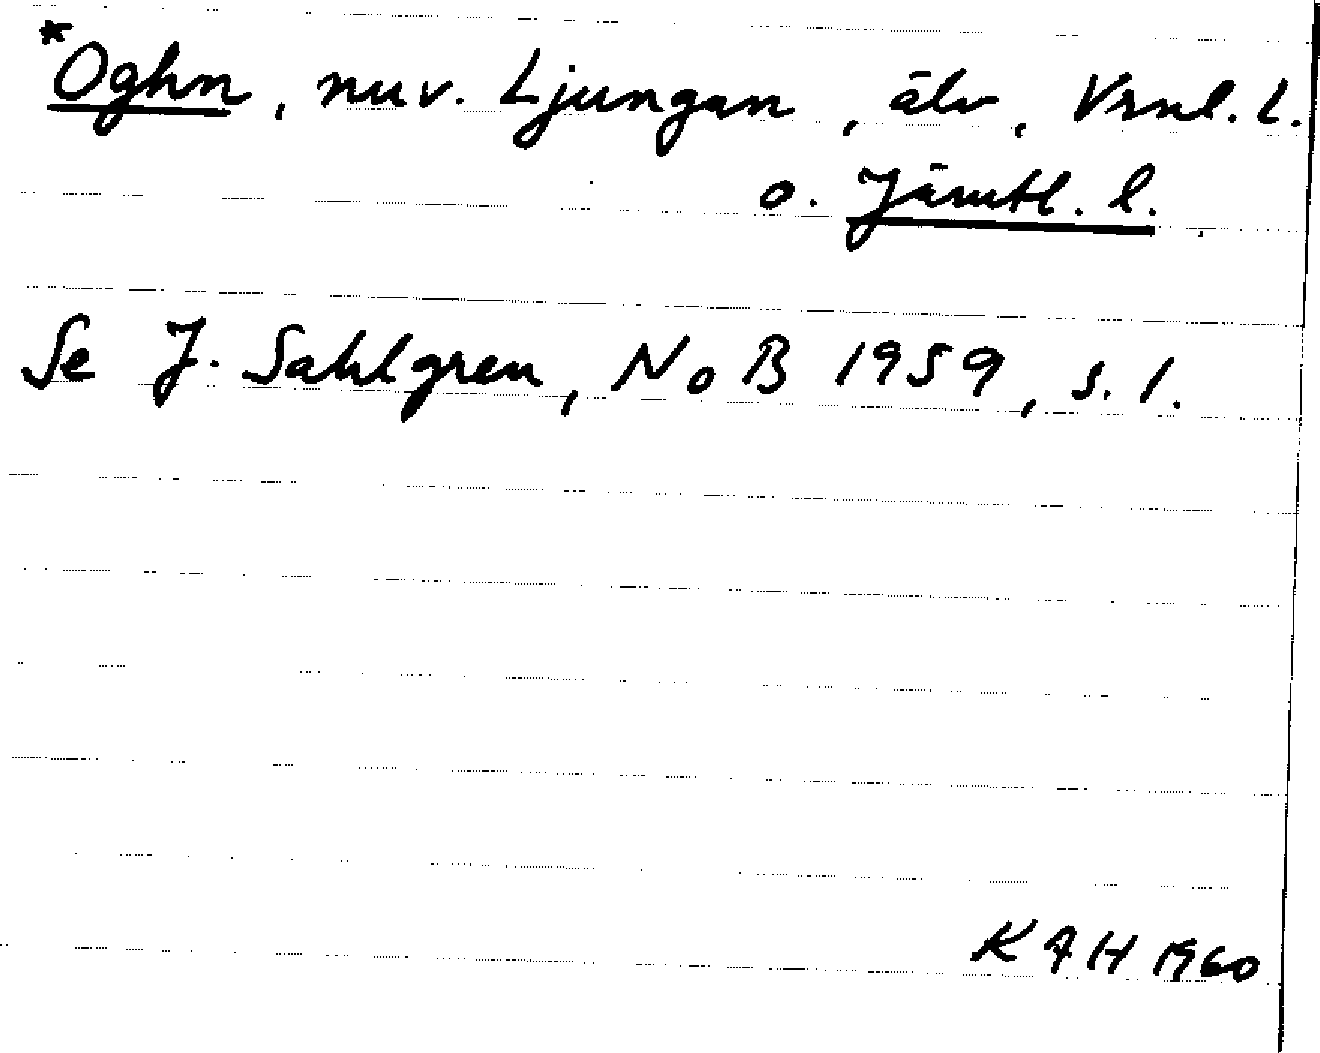 *Oghn, nuv. Ljungan, älv, Vrnl. l.
o. Jämtl. l.
Se J. Sahlgren, NoB 1959, s. 1.
KAH 1960